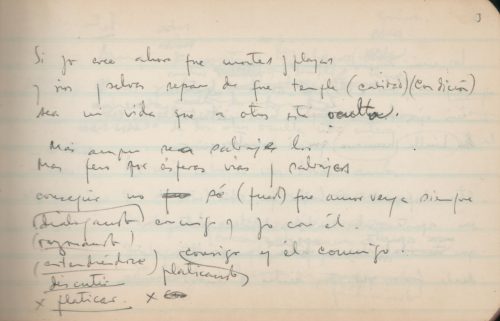 3
Si yo creo ahora que montes y playas
y ríos y selvas sepan de que temple (calidad) (condición)
sea mi vida que a otros está oculta.
Mas aunque sea salvajes los
Mas pero por ásperas vías y salvajes
conseguir no sé (puedo) que amor venga siempre
(dialogando) conmigo y yo con él.
(razonando)
(entendiéndose) consigo y él conmigo.
discutir platicando)
x platicar. x